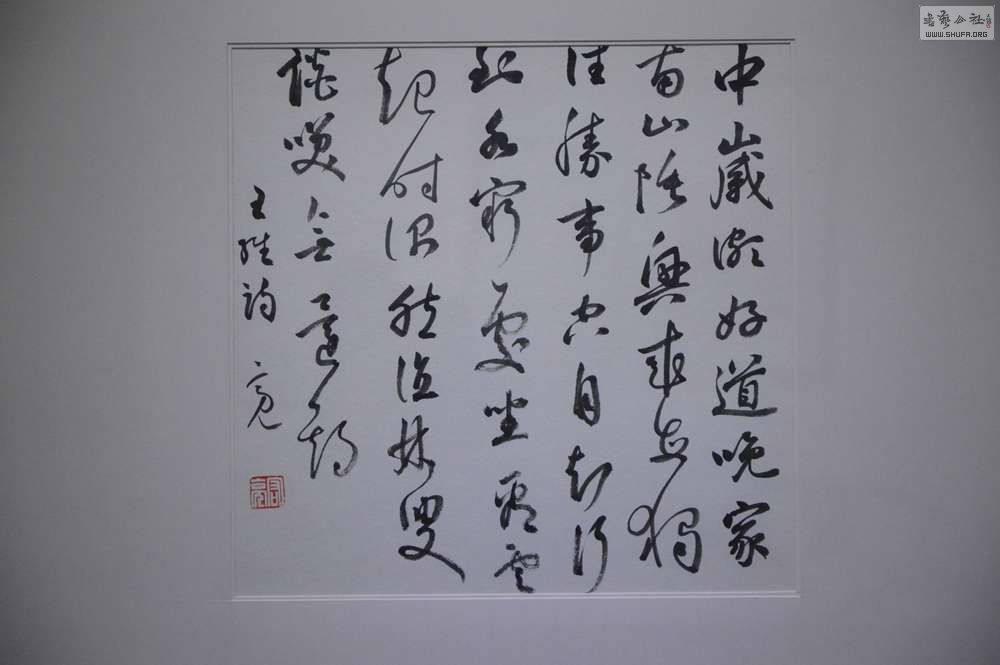 中歲頗好道晚家
南山陲興來每獨
往勝事空自知行
到水窮處坐看雲
起時偶然值林叟
談咲無還期
王維詩 亮
書藝公社
WWW.SHUFA.ORG